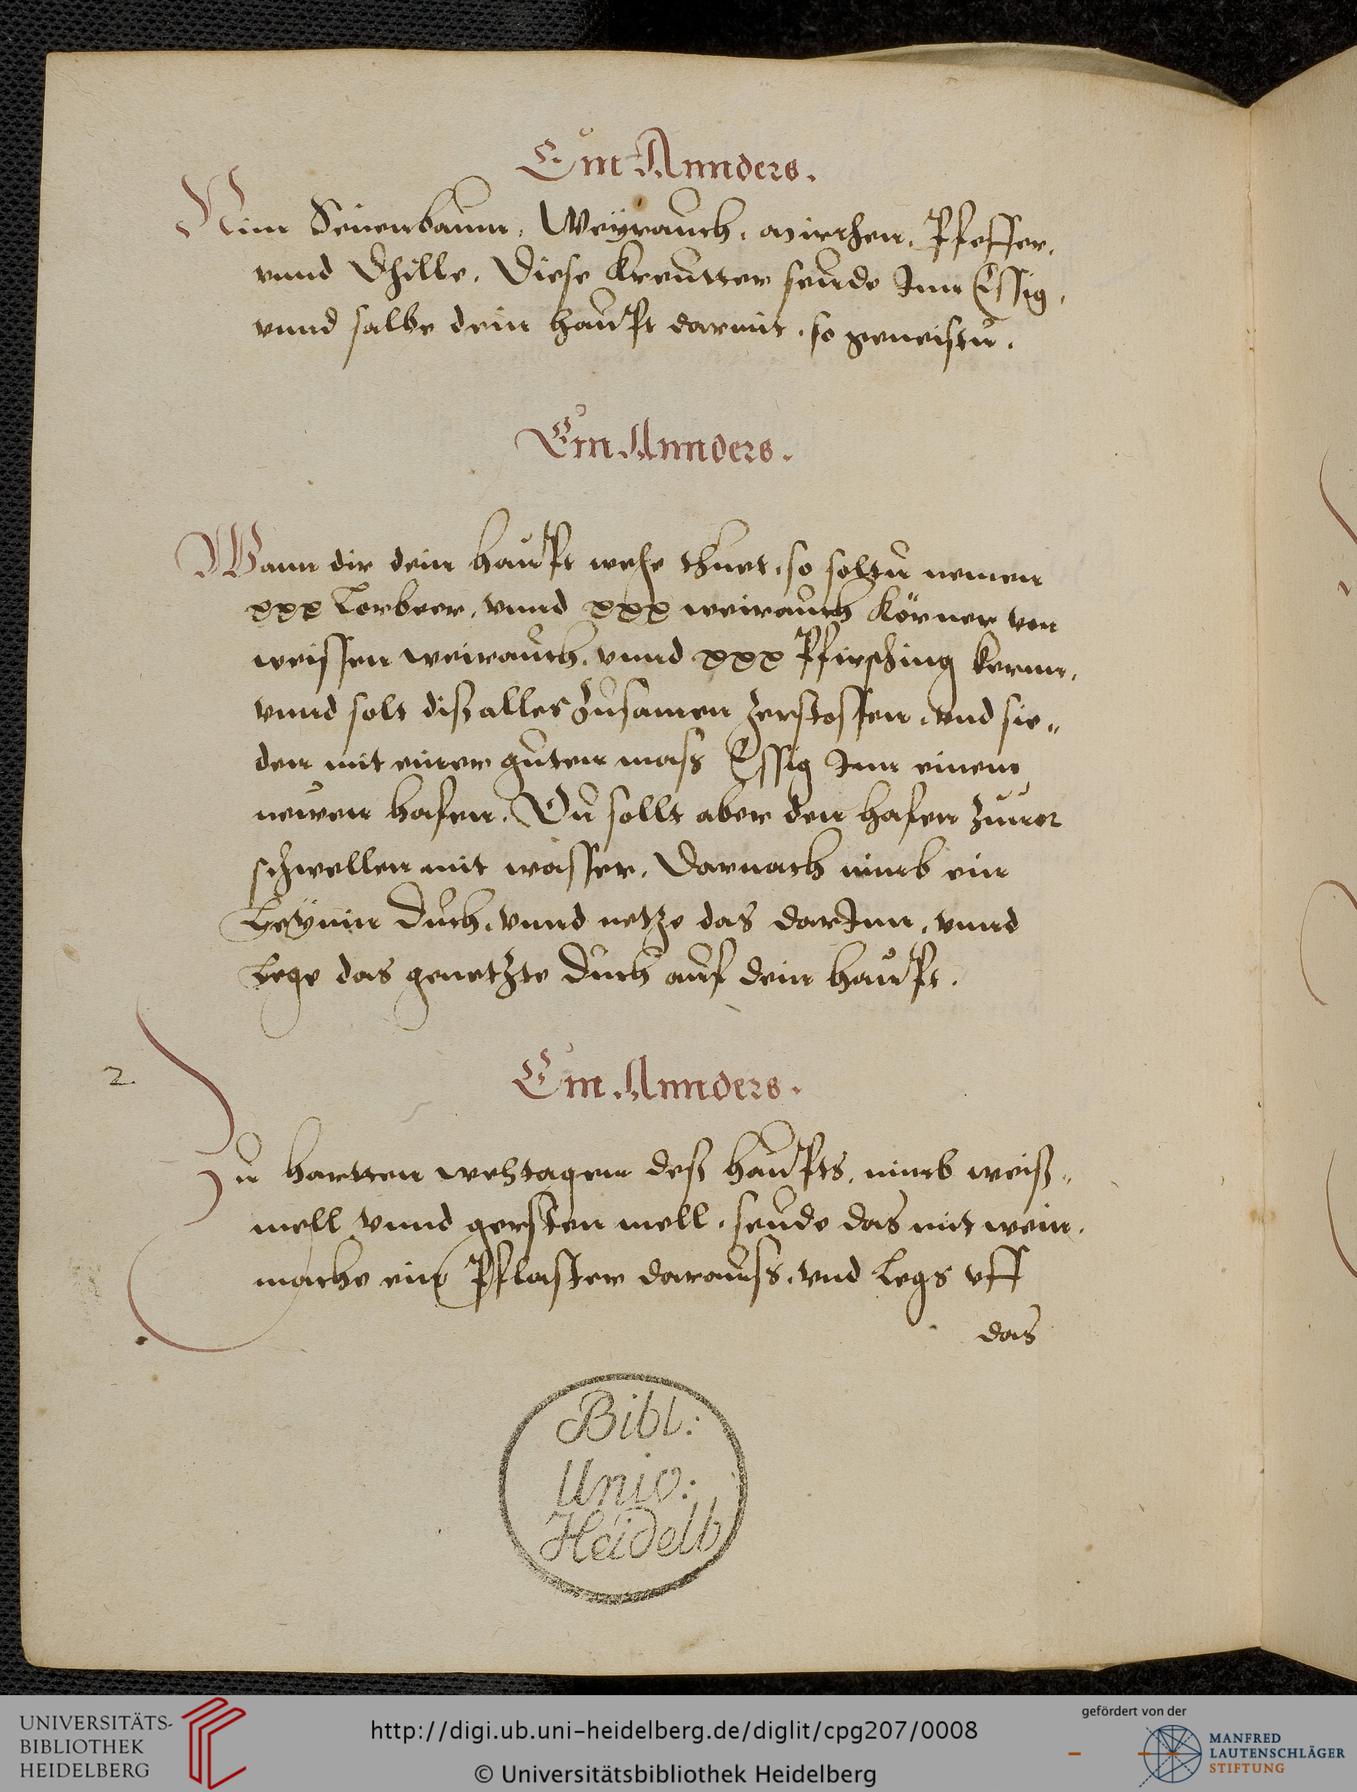 Ein Annders.
Nim Seuenbaum, Weyrauch, mirrhen, Pfeffer,
vnnd Dhille, Diese Kreutter seude Inn Essig,
vnnd salbe dein haupt darmit, so geneistu.
Ein Annders.
Wann dir dein haupt wehe thuet, so soltu nemen
xxx Lorbeer, vnnd xxx weirauch Körner von
weissen weirauch, vnnd xxx Pfirsching kernn,
vnnd solt diß alles zusamen zerstossen, vnd sie„
den mit einer guten mass Essig Inn einem
neuen hafen, Du sollt aber den hafen zuuor
schwellen mit wasser, Darnach nimb ein
Leynin Duch, vnnd netze das darInn, vnnd
Lege das genetzte Duch auf dein haupt.
2
Ein Annders.
Zu hartten wehtagenn deß haupts, nimb weiß„
mell vnnd gersten mell, seude das mit wein,
mache ein Pflaster darauss, vnd legs vff
das
Bibl:
Univ:
Heidelb
UNIVERSITÄTS-
BIBLIOTHEK
HEIDELBERG
http://digi.ub.uni-heidelberg.de/diglit/cpg207/0008
© Universitätsbibliothek Heidelberg
gefördert von der
MANFRED
LAUTENSCHLÄGER
STIFTUNG